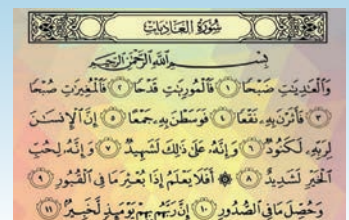 سُورَةُ الْعَادِيَاتِ
بِسْمِ اللَّهِ الرَّحْمَٰنِ الرَّحِيمِ
وَالْعَٰدِيَٰتِ ضَبْحًا ١ فَالْمُورِيَٰتِ قَدْحًا ٢ فَالْمُغِيرَٰتِ صُبْحًا
٣ فَأَثَرْنَ بِهِۦ نَقْعًا ٤ فَوَسَطْنَ بِهِۦ جَمْعًا ٥ إِنَّ الْإِنسَٰنَ
لِرَبِّهِۦ لَكَنُودٌ ٦ وَإِنَّهُۥ عَلَىٰ ذَٰلِكَ لَشَهِيدٌ ٧ وَإِنَّهُۥ لِحُبِّ
الْخَيْرِ لَشَدِيدٌ ٨ ۞ أَفَلَا يَعْلَمُ إِذَا بُعْثِرَ مَا فِي الْقُبُورِ ٩
وَحُصِّلَ مَا فِي الصُّدُورِ ١٠ إِنَّ رَبَّهُم بِهِمْ يَوْمَئِذٍ لَّخَبِيرٌ ١١